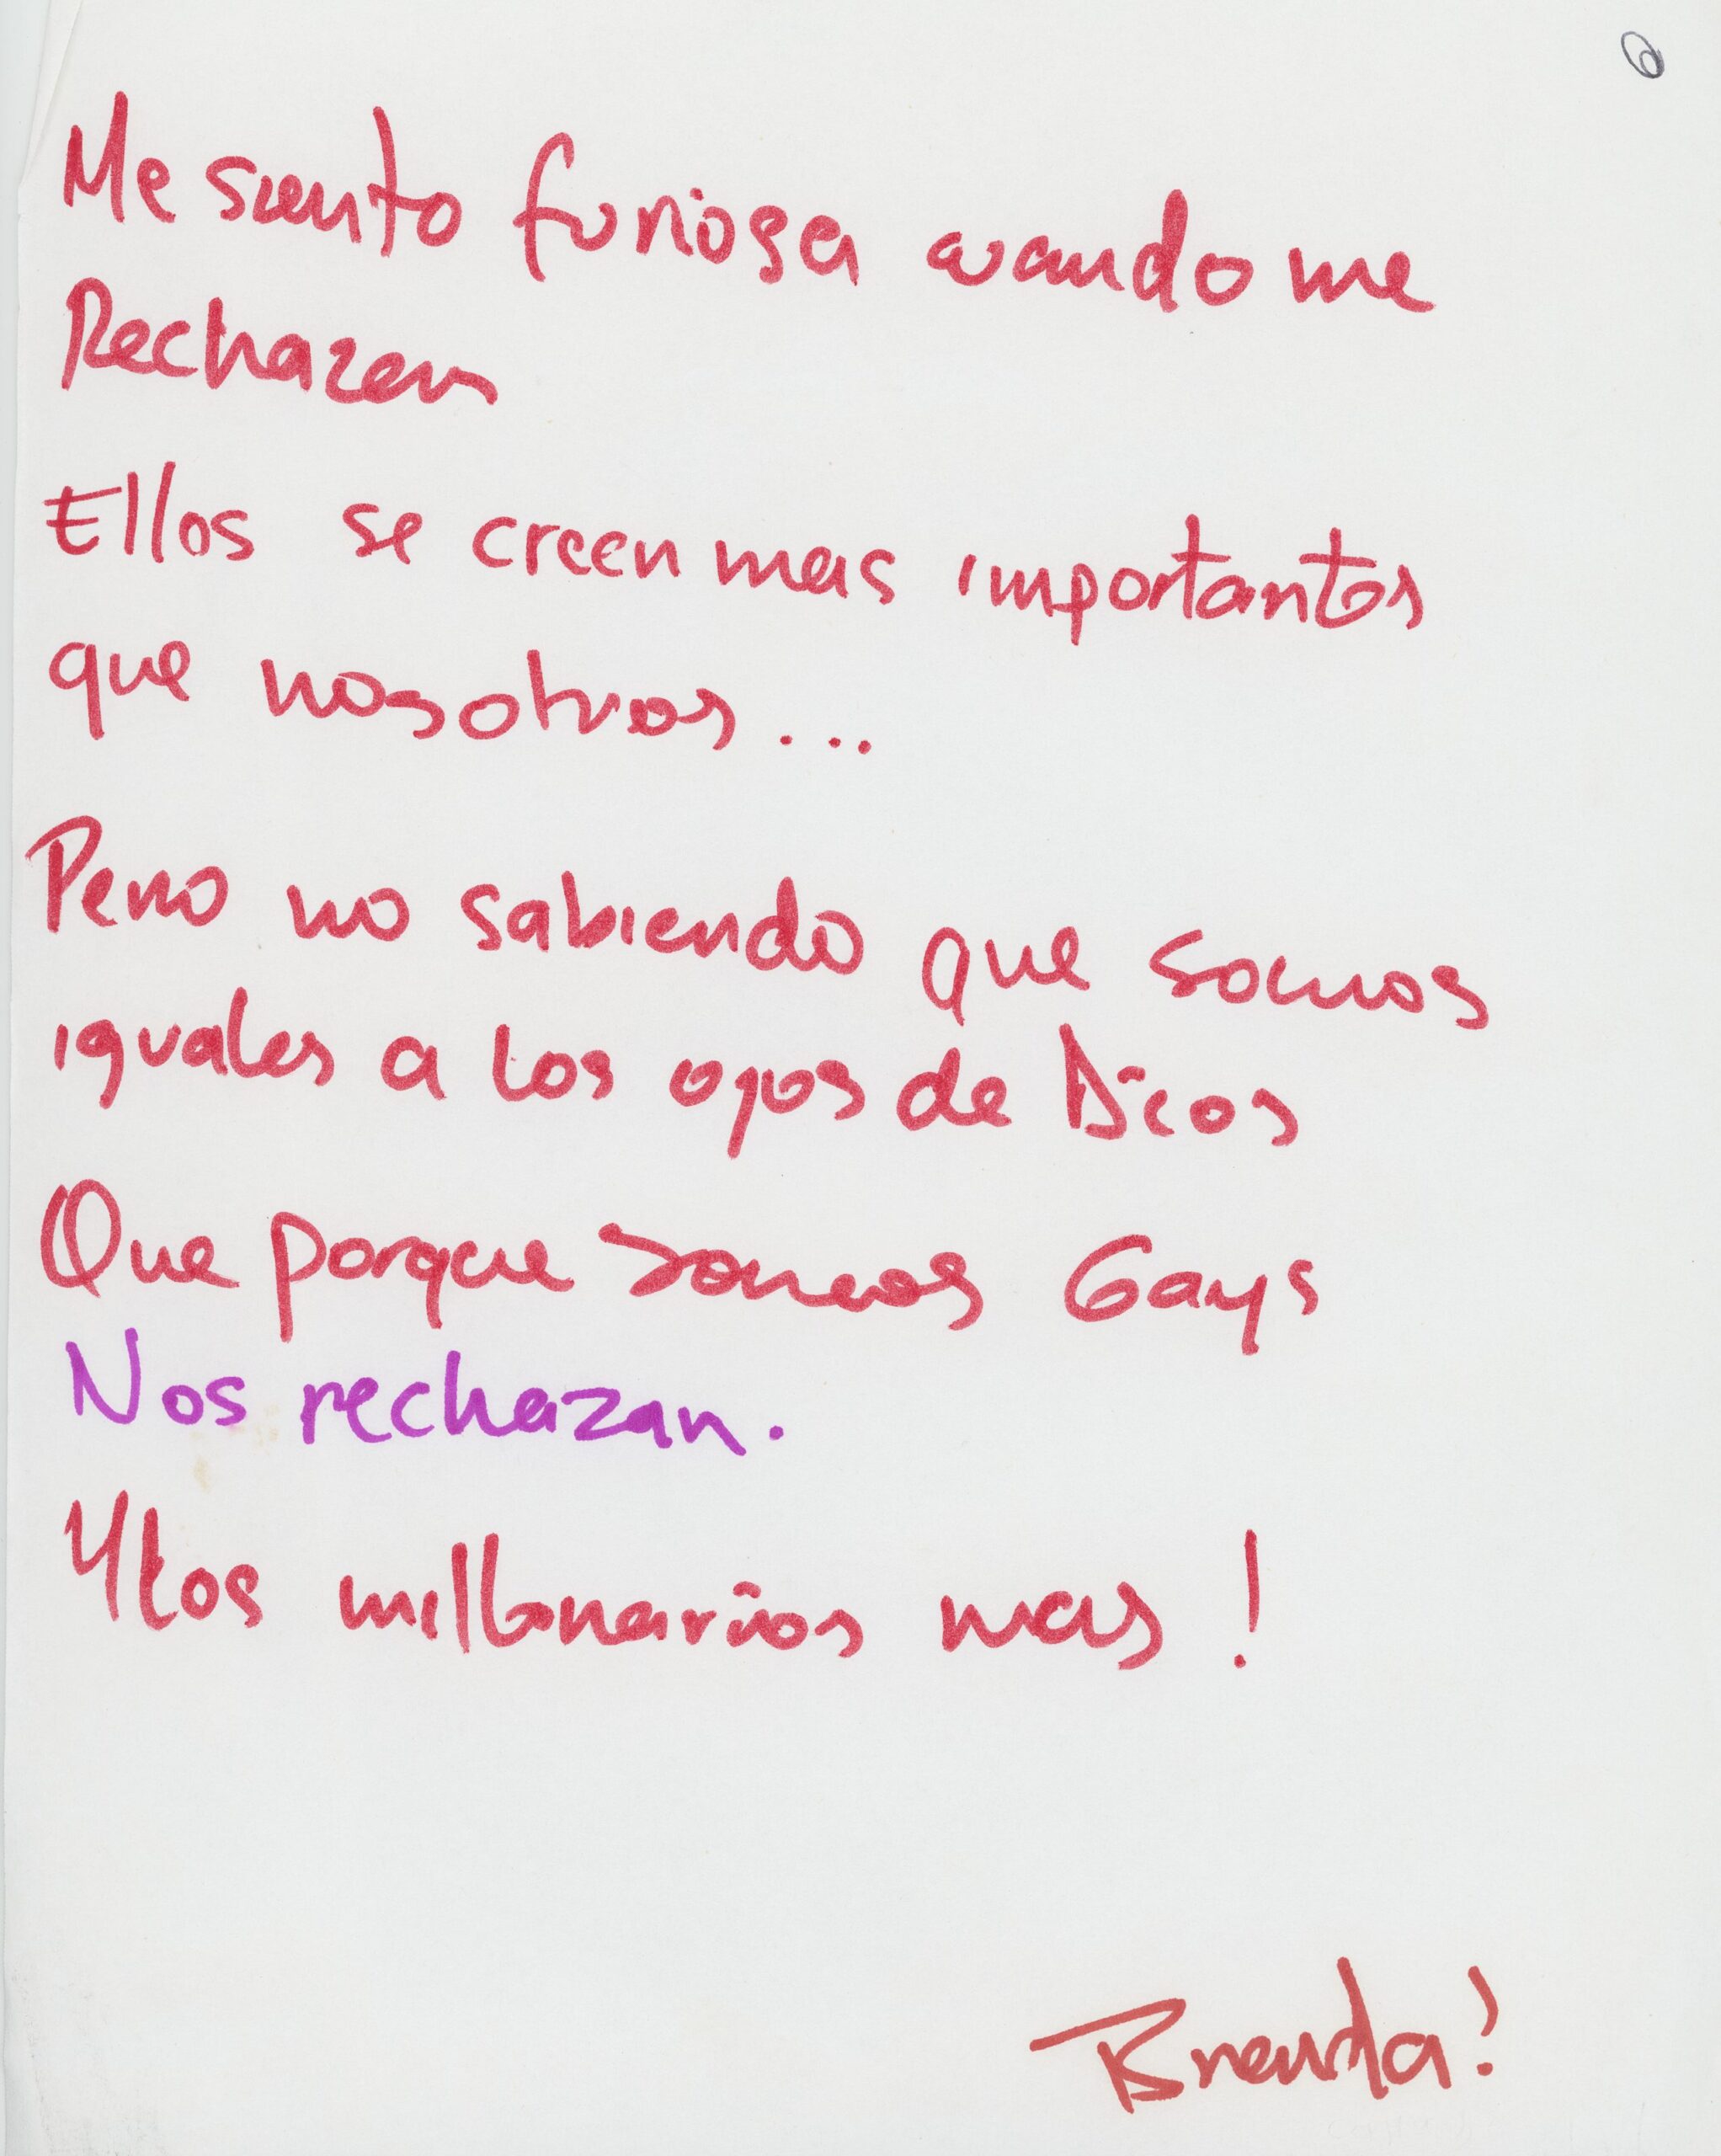 6
Me siento furiosa cuando me
Rechazan
Ellos se creen mas importantes
que nosotros...
Pero no sabiendo que somos
iguales a los ojos de Dios
Que porque somos Gays
Nos rechazan.
Y los millonarios mas!
Brenda!